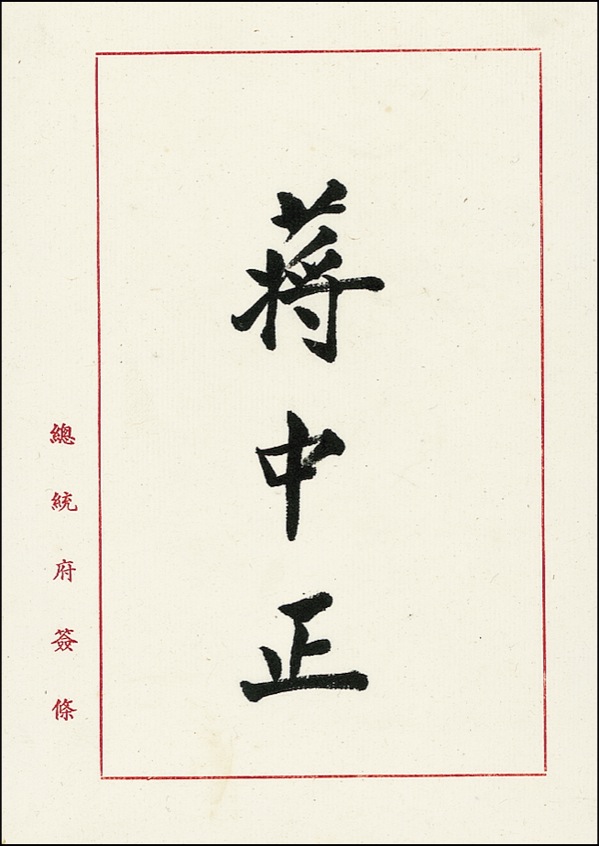 蔣中正
總統府簽條